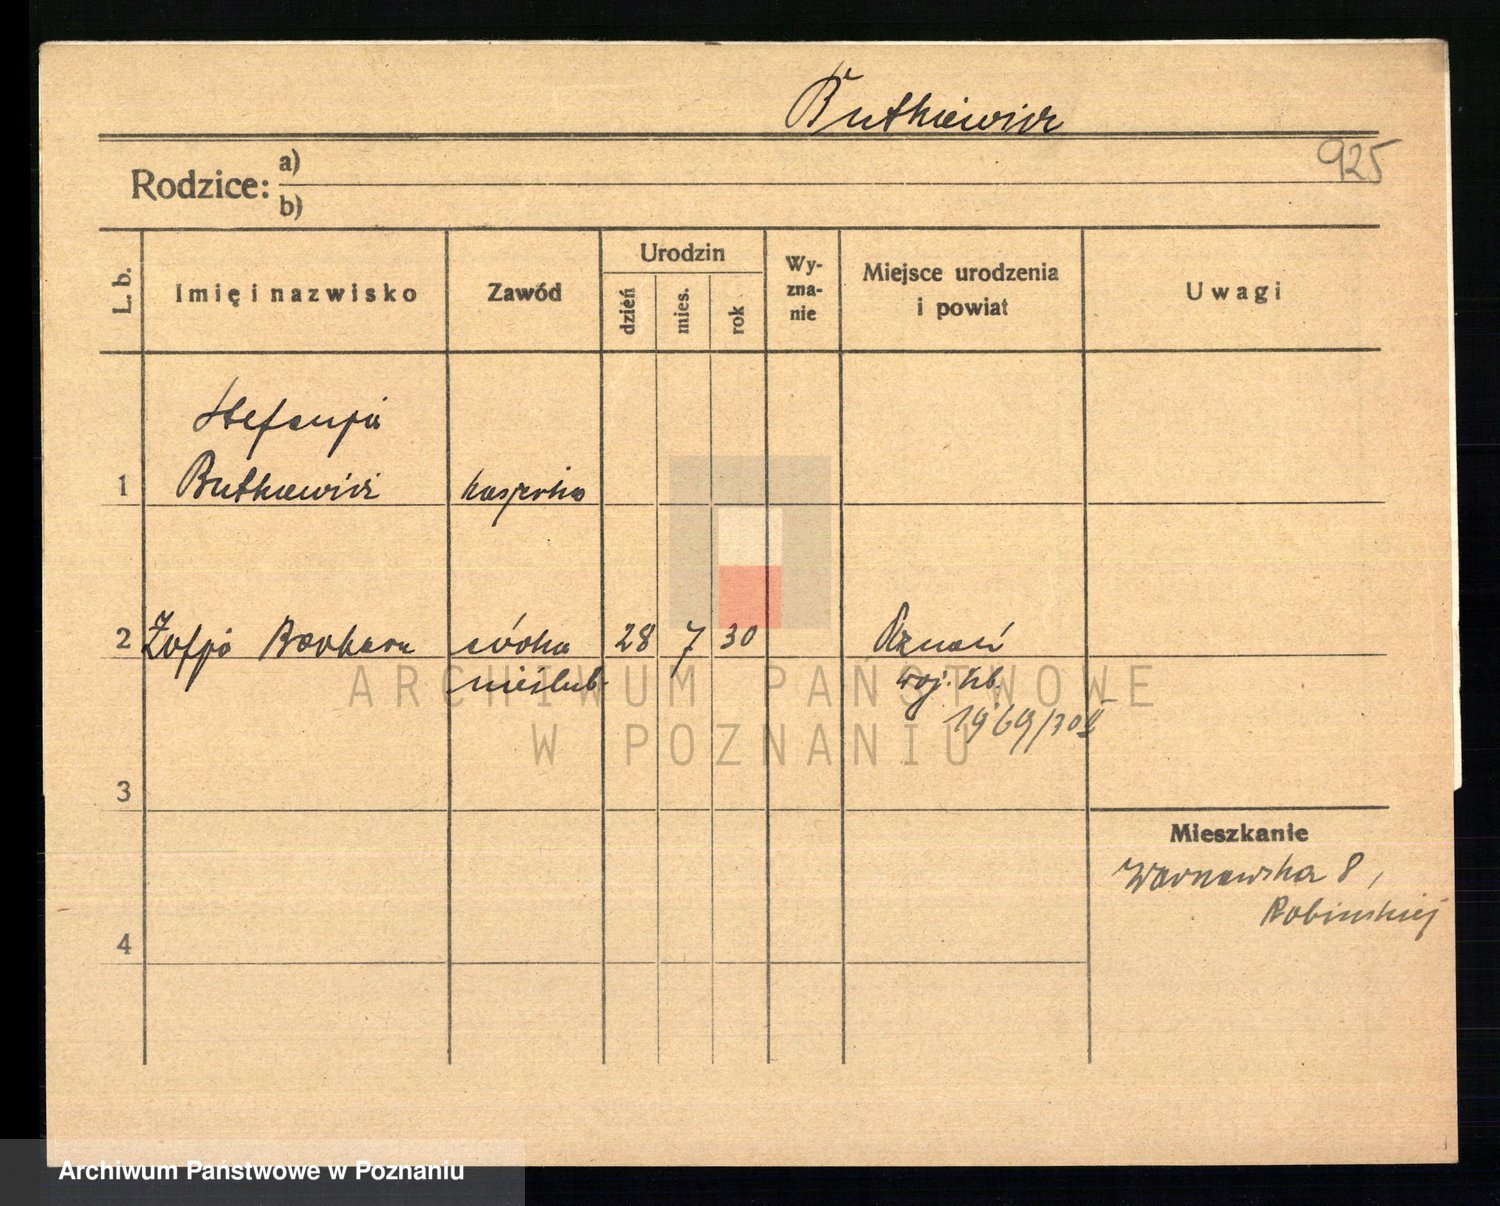 Butkiewicz
925
Rodzice: a)
b)
L. b.
Imię i nazwisko
Zawód
Urodzin
dzień
mies.
rok
Wy-
zna-
nie
Miejsce urodzenia
i powiat
Uwagi
Stefanja
1 Butkiewicz
2 Zofja Barbara córka 28 7 30 Poznań
nieślub. woj. lub.
1969/30 II
ARCHIWUM PAŃSTWOWE
W POZNANIU
3
Mieszkanie
8,
Robinskiej
4
Archiwum Państwowe w Poznaniu